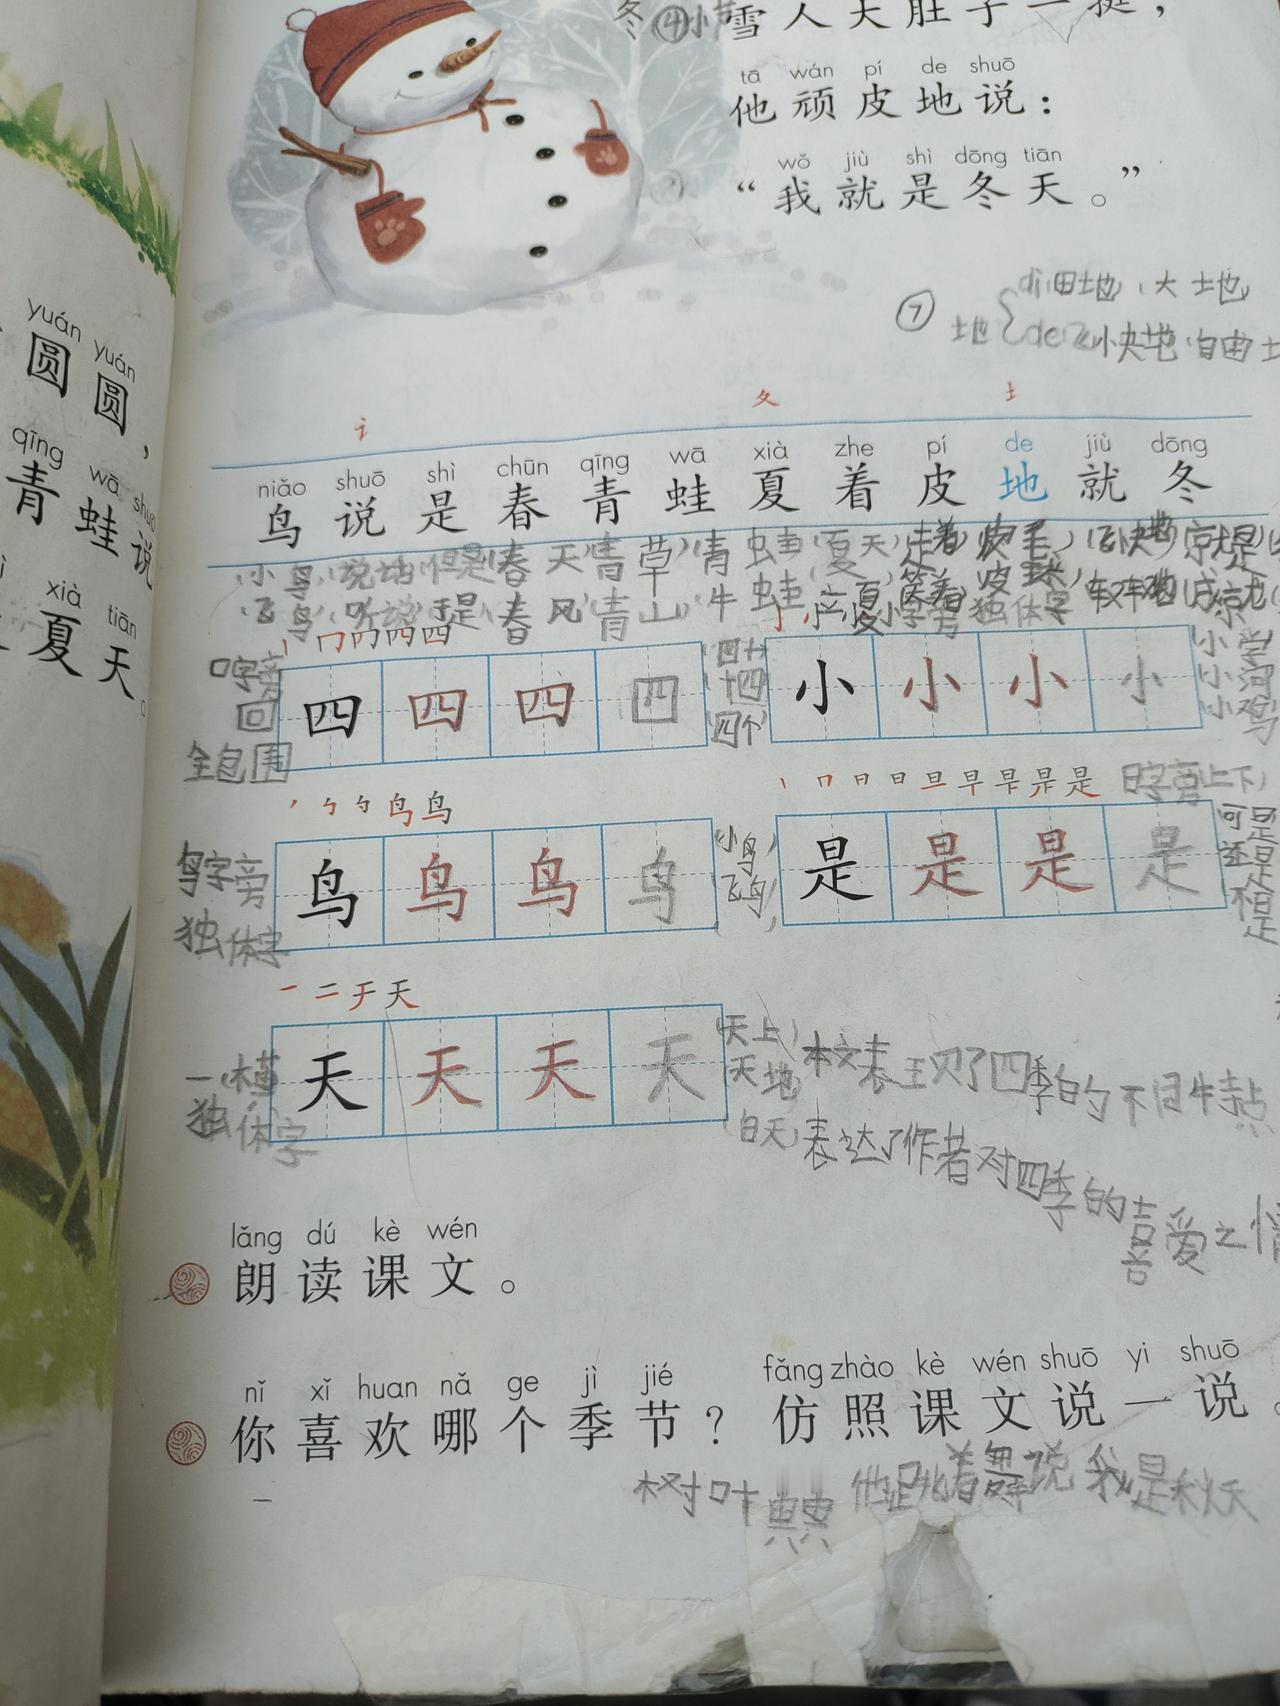 冬 ④ 小 雪人大肚子一挺，
tā wán pí de shuō
他顽皮地说：
wǒ jiù shì dōng tiān
“我就是冬天。”
⑦ 地 { dì 田地 大地
de 飞快地 自由
yuán yuán
圆圆，
qīng wā shuō
青蛙说
xià tiān
夏天。
讠 夂 土
niǎo shuō shì chūn qīng wā xià zhe pí de jiù dōng
鸟说是春青蛙夏着皮地就冬
小鸟 说话 但是 春天 青草 青蛙 夏天 走着 皮毛 飞快地
飞鸟 听说 于是 春风 青山 牛蛙 立夏 笑着 皮球
小字旁 独体字
丨 冂 冂 四 四
口字旁
全包围
四 四 四 四
四十
十四
四个
小 小 小 小
小
小河
小鸡
鸟 鸟
日字旁 上下
鸟字旁
独体字
鸟 鸟 鸟 鸟
小鸟
飞鸟
是 是 是 是
可是
还是
不是
一 二 于 天
一 横
独体字
天 天 天 天
天上
天地
白天
本文表现了四季的不同特点
表达了作者对四季的喜爱之情
lǎng dú kè wén
朗读课文。
nǐ xǐ huan nǎ ge jì jié fǎng zhào kè wén shuō yi shuō
你喜欢哪个季节？仿照课文说一说。
树叶黄黄 他跳着舞说 我是秋天